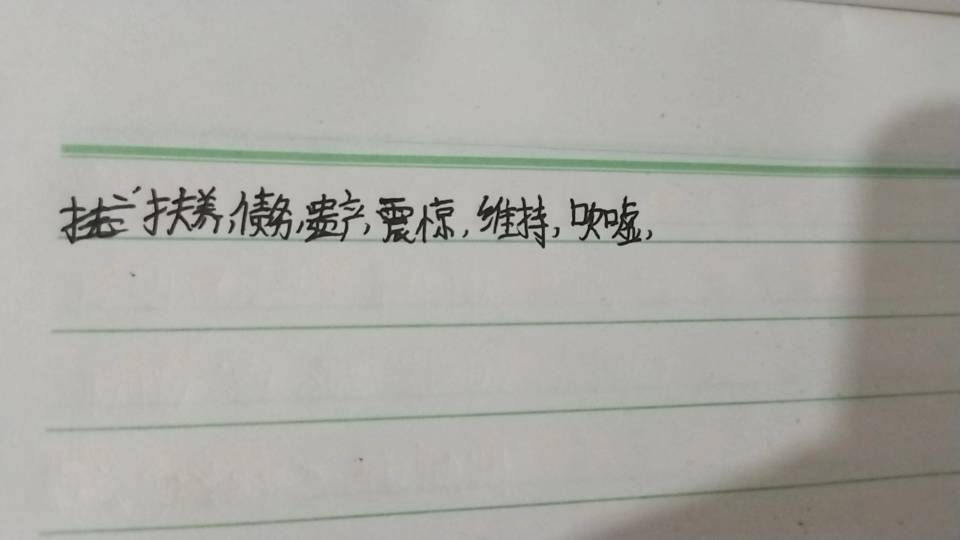 扶养,债务,遗产,震惊,维持,吹嘘,